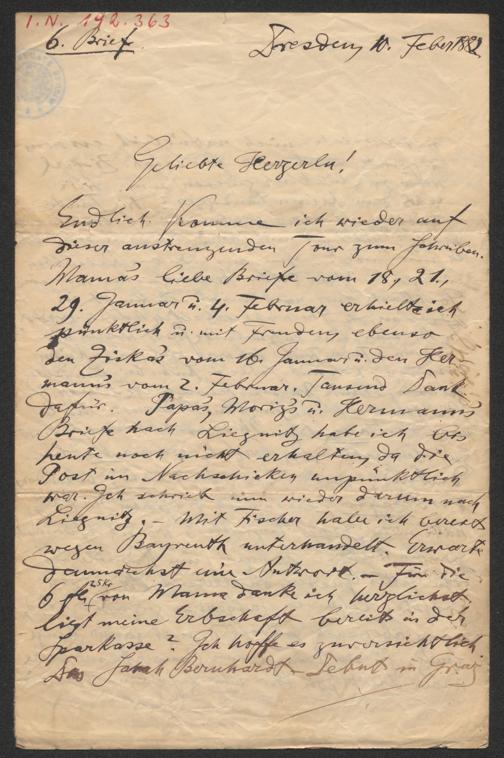 I.N. 192.363
6. Brief.
Dresden, 10. Feber 1882
Geliebte Herzerln!
Endlich komme ich wieder auf
dieser anstrengenden Tour zum Schreiben.
Mama's liebe Briefe vom 18, 21,
29. Januar u. 4. Februar erhielt ich
pünktlich u. mit Freuden, ebenso
den Ziska's vom 16. Januar u. den Her-
mann's vom 2. Februar. Tausend Dank
dafür. Papa's, Moriz's u. Hermann's
Briefe nach Liegnitz habe ich bis
heute noch nicht erhalten, da die
Post im Nachschicken unpünktlich
war. Ich schrieb nun wieder darum nach
Liegnitz. – Mit Fischer habe ich bereits
wegen Bayreuth unterhandelt. Erwarte
demnächst eine Antwort. – Für die
6 fl. 25 Kr. von Mama danke ich herzlichst
liegt meine Erbschaft bereits in der
Sparkasse? Ich hoffe es zuversichtlich
Das Sarah Bernhardt-Debut in Graz